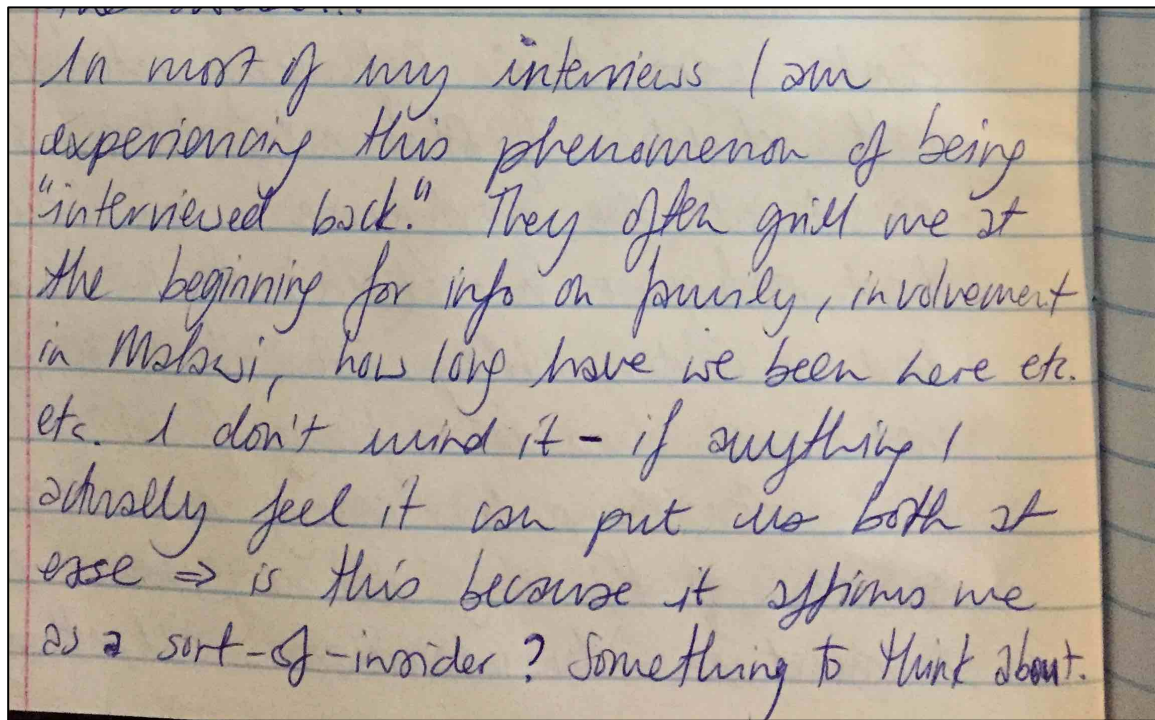 In most of my interviews I am
experiencing this phenomenon of being
"interviewed back." They often grill me at
the beginning for info on family, involvement
in Malawi, how long have we been here etc.
etc. I don't mind it - if anything I
actually feel it can put us both at
ease ⇒ is this because it affirms me
as a sort-of-insider? Something to think about.